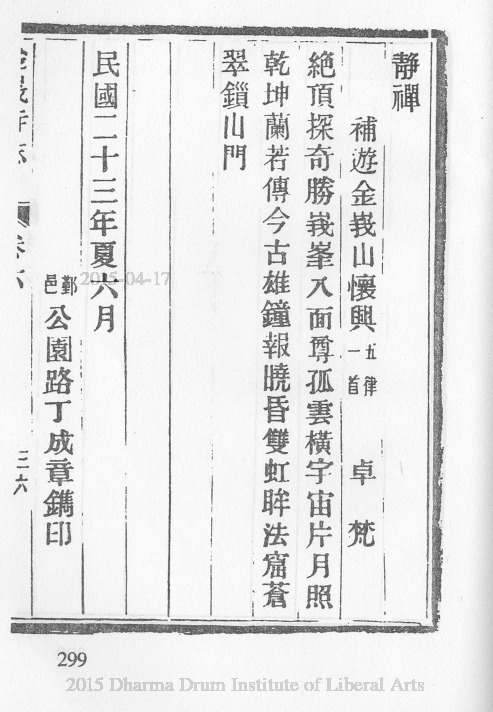 靜禪
補遊金峩山懷興 五律一首 卓梵
絕頂探奇勝峩峯八面尊孤雲橫宇宙片月照
乾坤蘭若傳今古雄鐘報曉昏雙虹眸法窟蒼
翠鎖山門
民國二十三年夏六月
鄞邑公園路丁成章鐫印
卷六
三六
2015-04-17
299
2015 Dharma Drum Institute of Liberal Arts